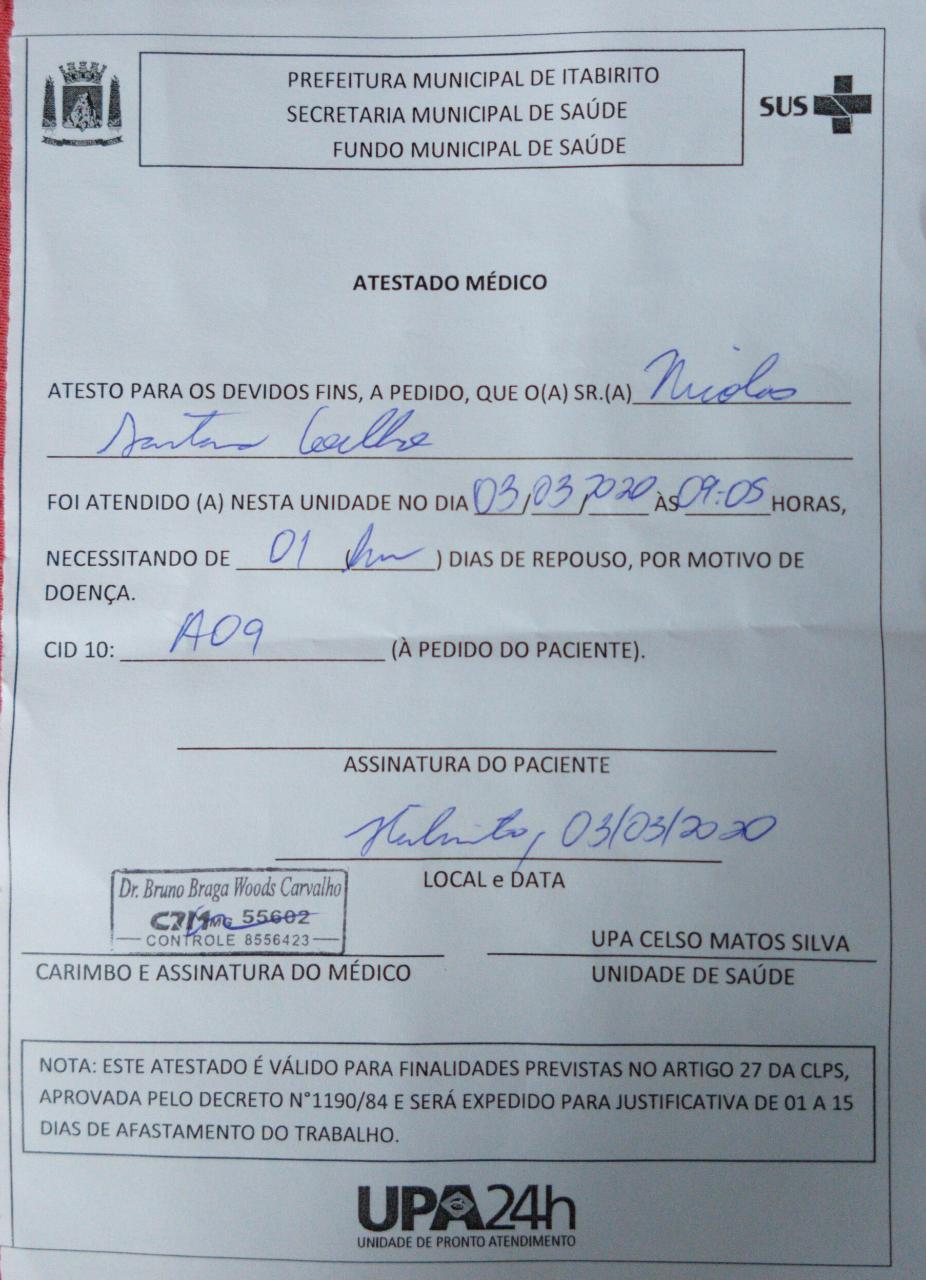 PREFEITURA MUNICIPAL DE ITABIRITO
SECRETARIA MUNICIPAL DE SAÚDE
FUNDO MUNICIPAL DE SAÚDE
SUS
ATESTADO MÉDICO
ATESTO PARA OS DEVIDOS FINS, A PEDIDO, QUE O(A) SR.(A) Nicolas
Santana Coelho
FOI ATENDIDO (A) NESTA UNIDADE NO DIA 03/03/2020 ÀS 09:05 HORAS,
NECESSITANDO DE 01 (um) DIAS DE REPOUSO, POR MOTIVO DE
DOENÇA.
CID 10: A09 (À PEDIDO DO PACIENTE).
ASSINATURA DO PACIENTE
Itabirito, 03/03/2020
LOCAL e DATA
Dr. Bruno Braga Woods Carvalho
CRM MG 55602
CONTROLE 8556423
CARIMBO E ASSINATURA DO MÉDICO
UPA CELSO MATOS SILVA
UNIDADE DE SAÚDE
NOTA: ESTE ATESTADO É VÁLIDO PARA FINALIDADES PREVISTAS NO ARTIGO 27 DA CLPS,
APROVADA PELO DECRETO N°1190/84 E SERÁ EXPEDIDO PARA JUSTIFICATIVA DE 01 A 15
DIAS DE AFASTAMENTO DO TRABALHO.
UPA24h
UNIDADE DE PRONTO ATENDIMENTO